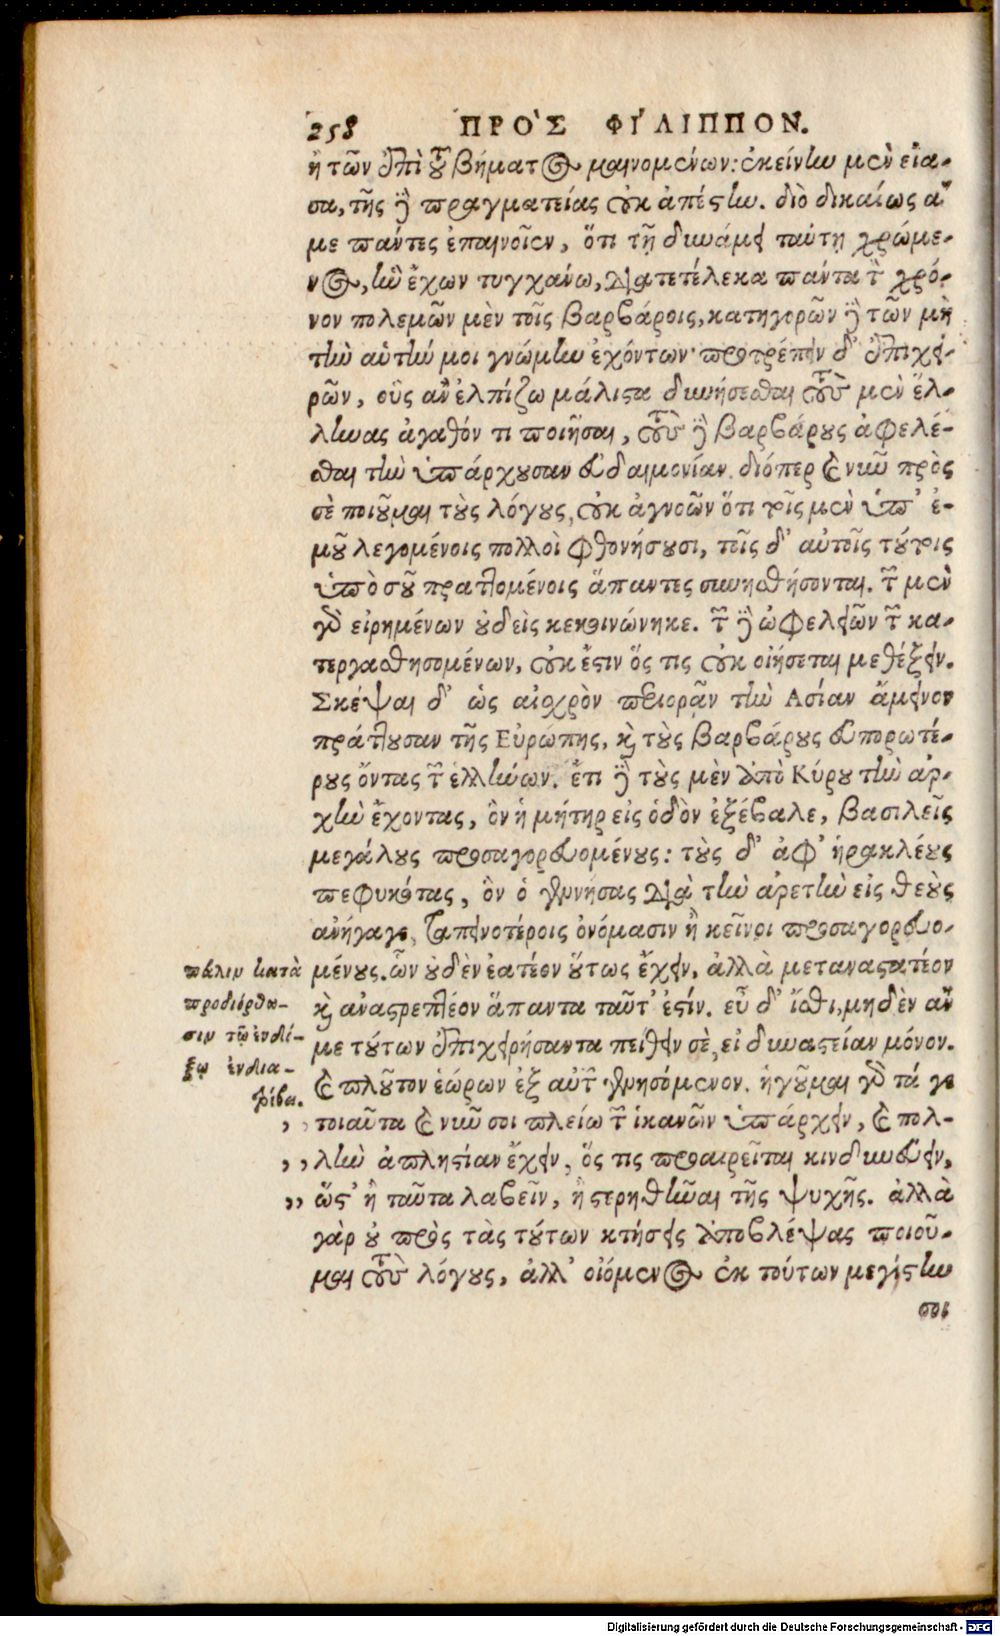 258 ΠΡΟ`Σ ΦΙ´ΛΙΠΠΟΝ.
ἢ τῶν ἐπὶ τοῦ βήματος μαινομένων: ἐκείνην μὲν εἴα-
σα, τῆς δὲ πραγματείας οὐκ ἀπέστην. διὸ δικαίως ἄν
με πάντες ἐπαινοῖεν, ὅτι τῇ δυνάμει ταύτῃ χρώμε-
νος, ἣν ἔχων τυγχάνω, διατετέλεκα πάντα τὸν χρό-
νον πολεμῶν μὲν τοῖς βαρβάροις, κατηγορῶν δὲ τῶν μὴ
τὴν αὐτήν μοι γνώμην ἐχόντων· προτρέπειν δ' ἐπιχει-
ρῶν, οὓς ἂν ἐλπίζω μάλιστα δυνήσεσθαι τοὺς μὲν ἕλ-
ληνας ἀγαθόν τι ποιῆσαι, τοὺς δὲ βαρβάρους ἀφελέ-
σθαι τὴν ὑπάρχουσαν εὐδαιμονίαν. διόπερ καὶ νῦν πρὸς
σὲ ποιοῦμαι τοὺς λόγους, οὐκ ἀγνοῶν ὅτι τοῖς μὲν ὑπ' ἐ-
μοῦ λεγομένοις πολλοὶ φθονήσουσι, τοῖς δ' αὐτοῖς τούτοις
ὑπὸ σοῦ πραττομένοις ἅπαντες συνησθήσονται. τῶν μὲν
γὰρ εἰρημένων οὐδεὶς κεκοινώνηκε. τῶν δὲ ὠφελειῶν τῶν κα-
τεργασθησομένων, οὐκ ἔστιν ὅς τις οὐκ οἰήσεται μεθέξειν.
Σκέψαι δ' ὡς αἰσχρὸν περιορᾷν τὴν Ἀσίαν ἄμεινον
πράττουσαν τῆς Εὐρώπης, καὶ τοὺς βαρβάρους εὐπορωτέ-
ρους ὄντας τῶν ἑλλήνων. ἔτι δὲ τοὺς μὲν ἀπὸ Κύρου τὴν ἀρ-
χὴν ἔχοντας, ὃν ἡ μήτηρ εἰς ὁδὸν ἐξέβαλε, βασιλεῖς
μεγάλους προσαγορευομένους: τοὺς δ' ἀφ' ἡρακλέους
πεφυκότας, ὃν ὁ γεννήσας διὰ τὴν ἀρετὴν εἰς θεοὺς
ἀνήγαγε, ταπεινοτέροις ὀνόμασιν ἢ κεῖνοι προσαγορευο-
μένους. ὧν οὐδὲν ἐατέον οὕτως ἔχειν, ἀλλὰ μεταναστατέον
καὶ ἀναστρεπτέον ἅπαντα ταῦτ' ἐστίν. εὖ δ' ἴσθι, μηδὲν ἄν
με τούτων ἐπιχειρήσαντα πείθειν σὲ, εἰ δυναστείαν μόνον.
καὶ πλοῦτον ἑώρων ἐξ αὐτῶν γενησόμενον. ἡγοῦμαι γὰρ τά γε
τοιαῦτα καὶ νῦν σοι πλείω τῶν ἱκανῶν ὑπάρχειν, καὶ πολ-
λὴν ἀπληστίαν ἔχειν, ὅς τις προαιρεῖται κινδυνεύειν,
ὥστ' ἢ ταῦτα λαβεῖν, ἢ στερηθῆναι τῆς ψυχῆς. ἀλλὰ
γὰρ οὐ πρὸς τὰς τούτων κτήσεις ἀποβλέψας ποιοῦ-
μαι τοὺς λόγους, ἀλλ' οἰόμενος ἐκ τούτων μεγίστην
σοι
πάλιν κατὰ
προδιόρθω-
σιν τῷ ἐνδό-
ξῳ ἐνδια-
τρίβει.
Digitalisierung gefördert durch die Deutsche Forschungsgemeinschaft - DFG